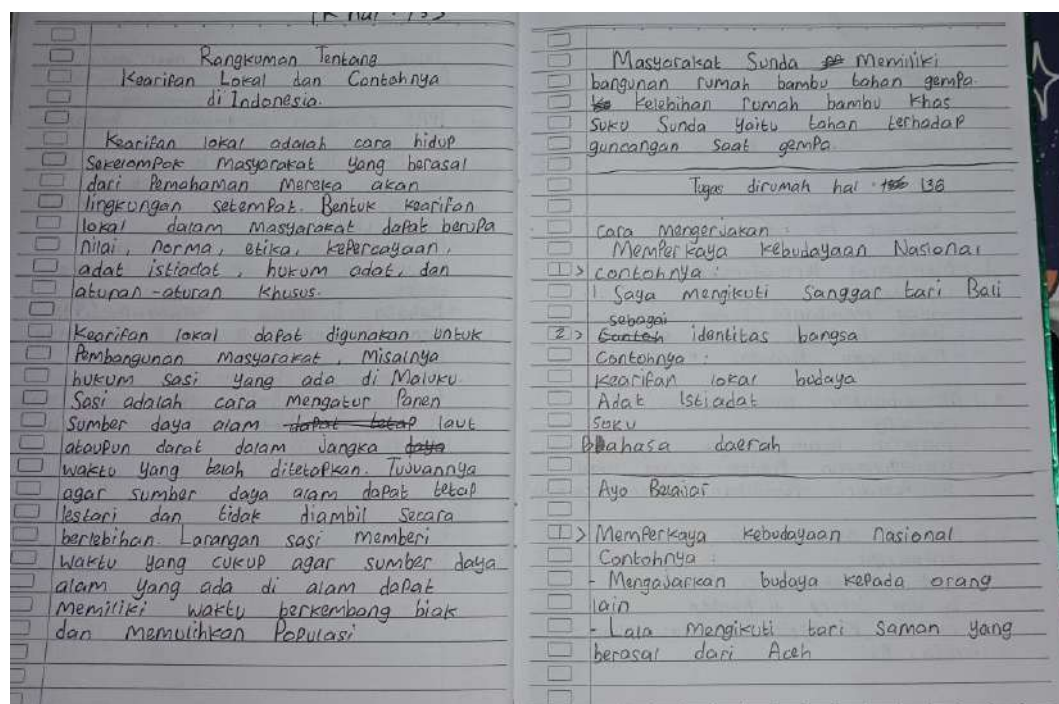 Rangkuman Tentang
Kearifan Lokal dan Contohnya
di Indonesia.
Kearifan lokal adalah cara hidup
Sekelompok masyarakat yang berasal
dari Pemahaman Mereka akan
lingkungan setempat. Bentuk kearifan
lokal dalam Masyarakat dapat berupa
nilai, norma, etika, kepercayaan,
adat istiadat, hukum adat, dan
aturan-aturan khusus.
Kearifan lokal dapat digunakan untuk
Pembangunan Masyarakat, Misalnya
hukum sasi yang ada di Maluku
Sasi adalah cara mengatur Panen
Sumber daya alam dapat tetap laut
ataupun darat dalam jangka daya
waktu yang telah ditetapkan. Tujuannya
agar sumber daya alam dapat tetap
lestari dan tidak diambil Secara
berlebihan. Larangan sasi memberi
Waktu yang cukup agar sumber daya
alam yang ada di alam dapat
Memiliki waktu berkembang biak
dan Memulihkan Populasi
Masyarakat Sunda Memiliki
bangunan rumah bambu tahan gempa.
Kelebihan rumah bambu khas
Suku Sunda yaitu tahan terhadap
guncangan saat gempa.
Tugas dirumah hal. 136
Cara Mengerjakan :
Memperkaya kebudayaan Nasional
1> contohnya :
1 Saya mengikuti Sanggar tari Bali
sebagai
2> Contoh identitas bangsa
Contohnya :
Kearifan lokal budaya
Adat Istiadat
Suku
Bahasa daerah
Ayo Belajar
1> Memperkaya kebudayaan nasional
Contohnya :
- Mengajarkan budaya kepada orang
lain
- Lala mengikuti tari Saman yang
berasal dari Aceh